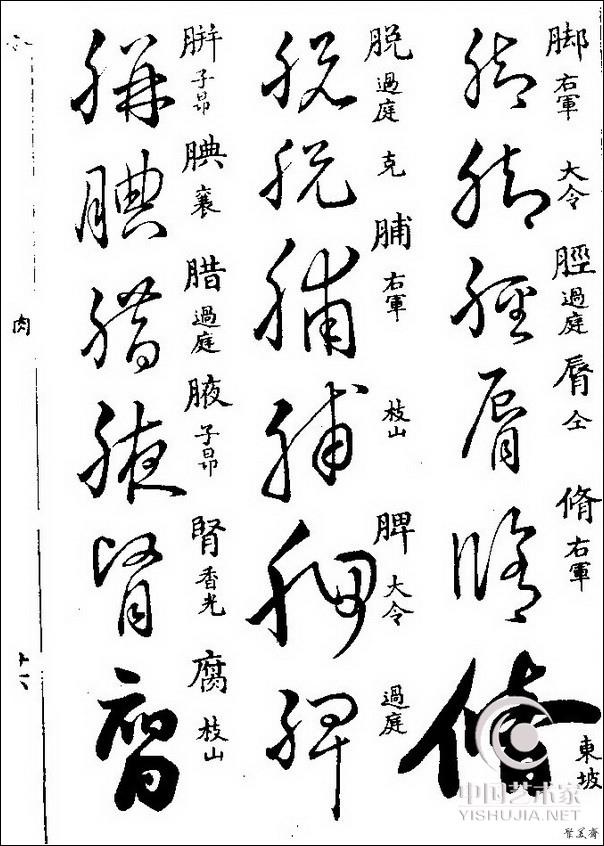 脚 右軍
大令
脛 過庭
脣 仝
脩 右軍
東坡
脱 過庭
克
脯 右軍
枝山
脾 大令
過庭
胼 子昂
腆 襄
腊 過庭
腋 子昂
腎 香光
腐 枝山
肉
十六
中国艺术家
YISHUJIA.NET